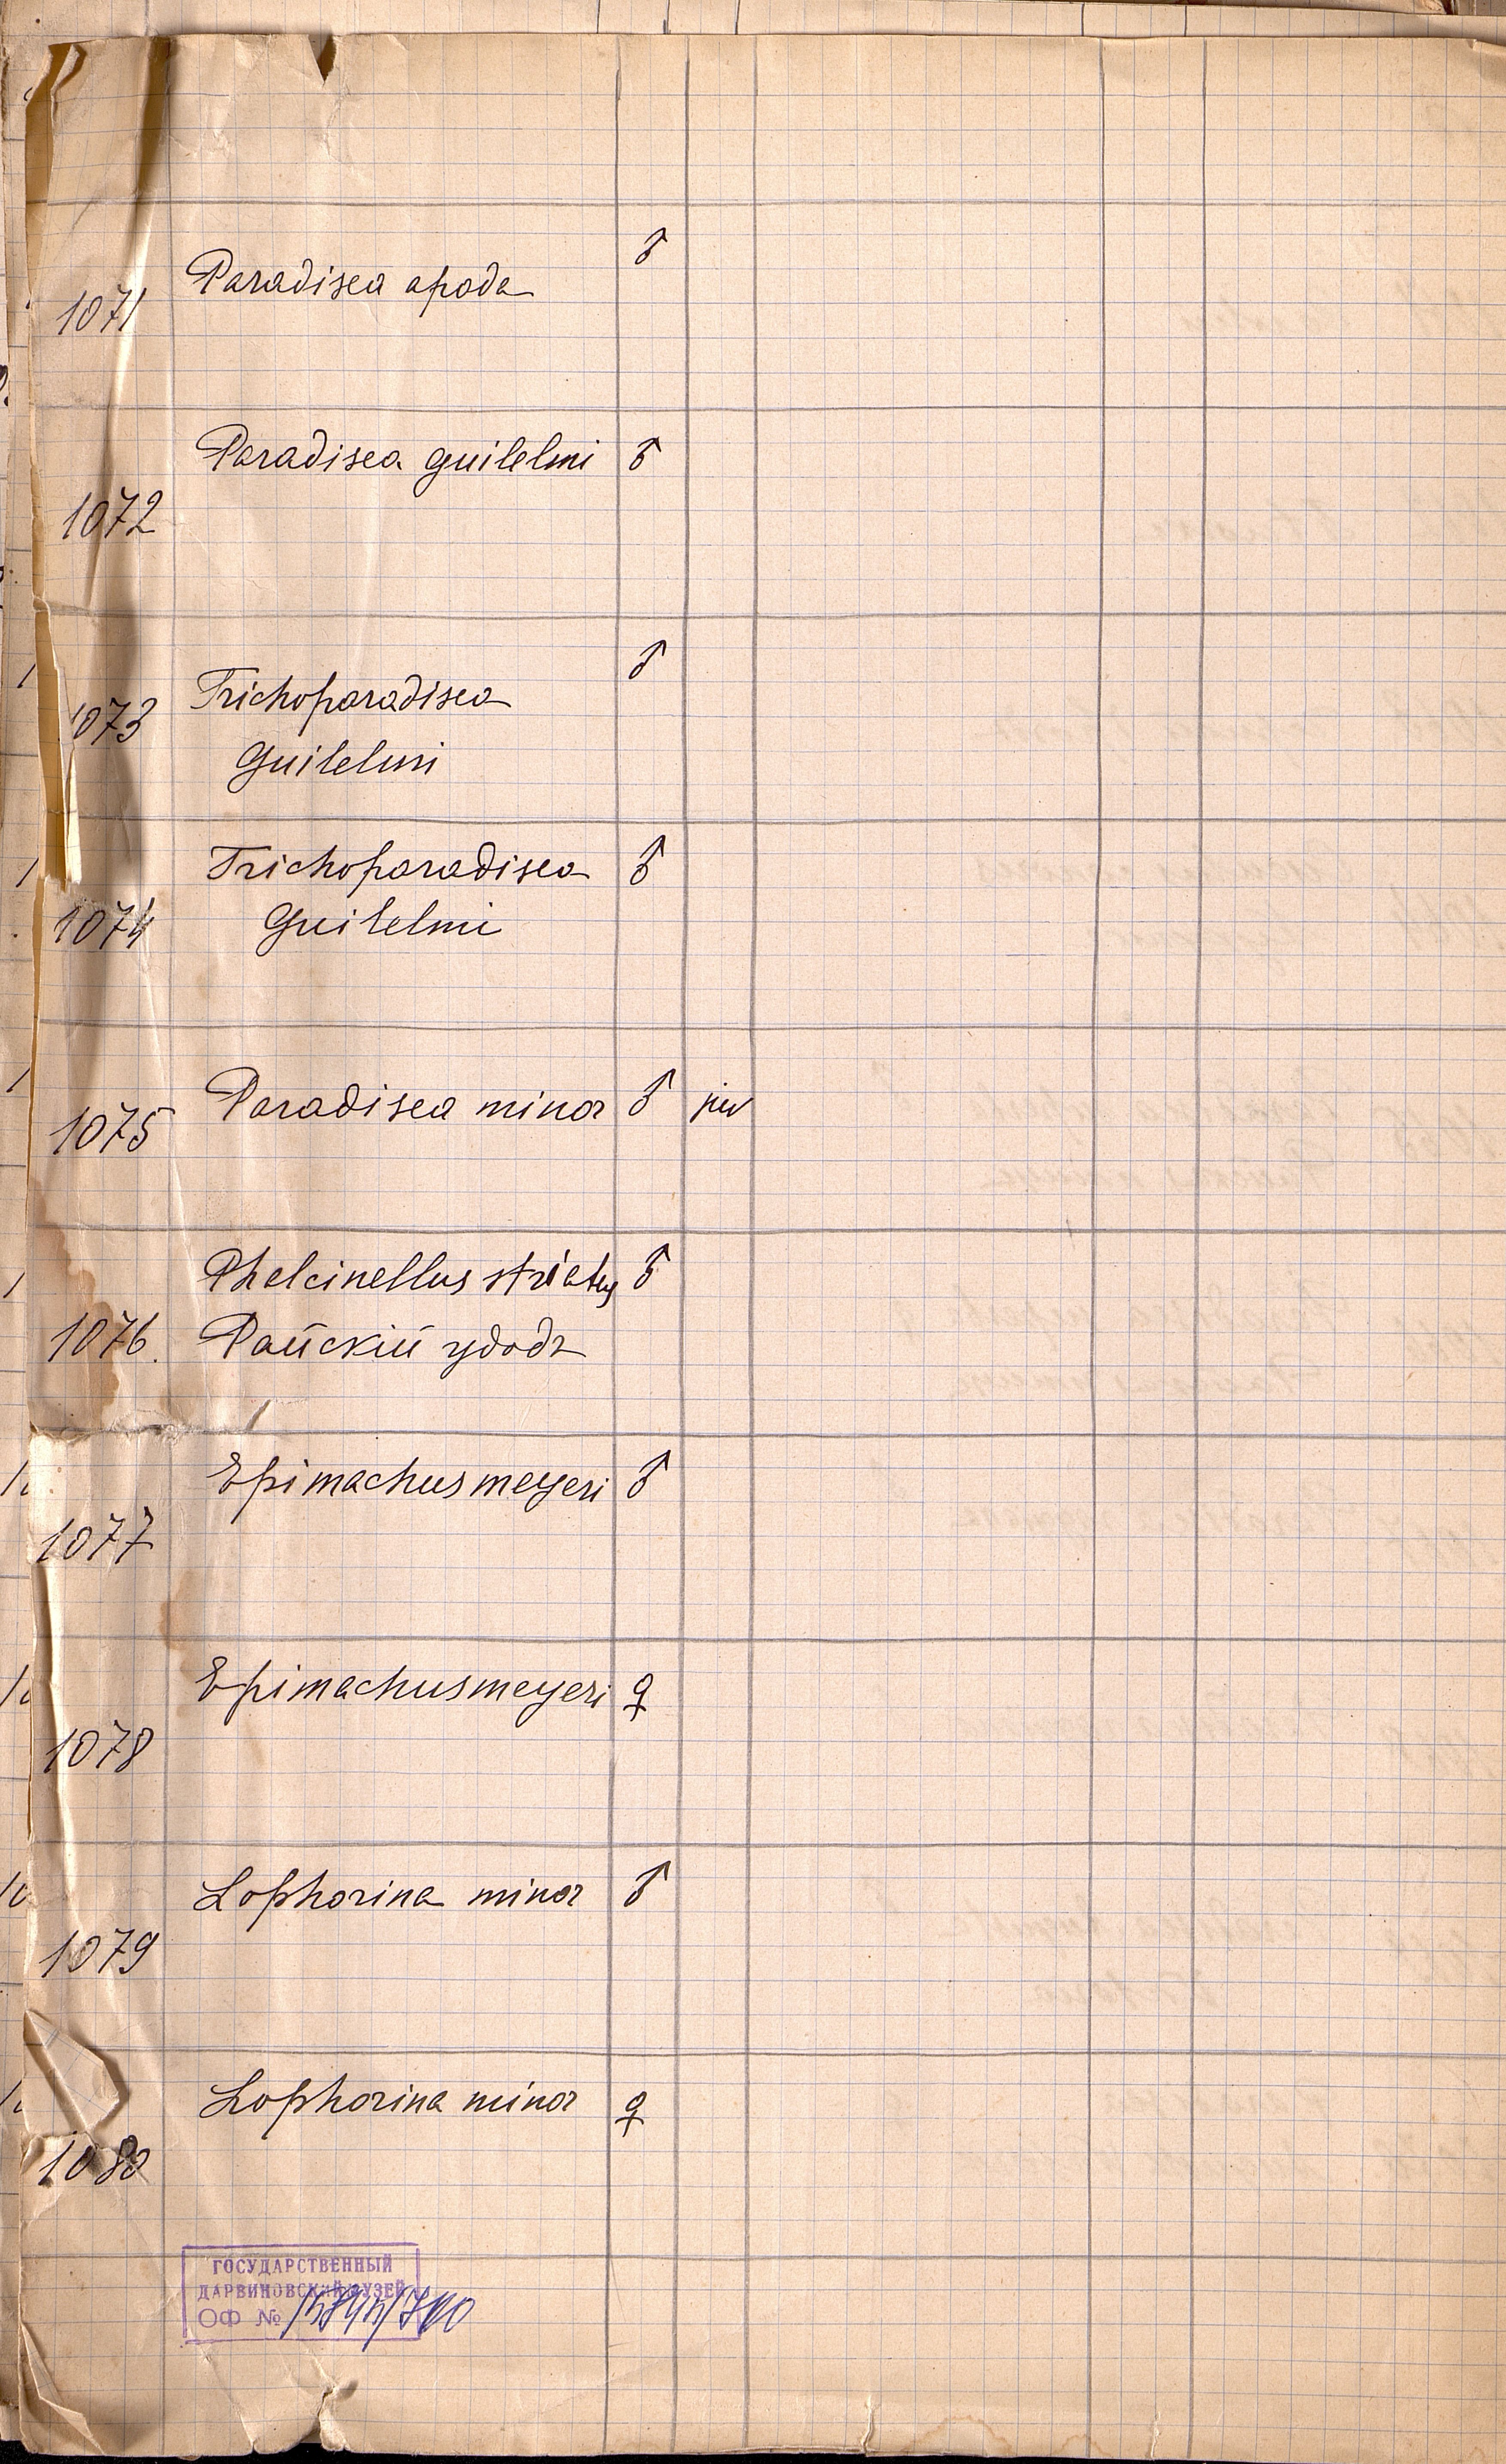 Paradisea apoda ♂
1071
Paradisea guilelmi ♂
1072
♂
1073 Trichoparadisea
Guilelmi
Trichoparadisea ♂
1074 Guilelmi
Paradisea minor ♂ juv
1075
Phelcinellus striatus ♂
1076. Райскій удодъ
Epimachus meyeri ♂
1077
Epimachus meyeri ♀
1078
Lophorina minor ♂
1079
Lophorina minor ♀
1080
ГОСУДАРСТВЕННЫЙ
ДАРВИНОВСКИЙ МУЗЕЙ
ОФ №